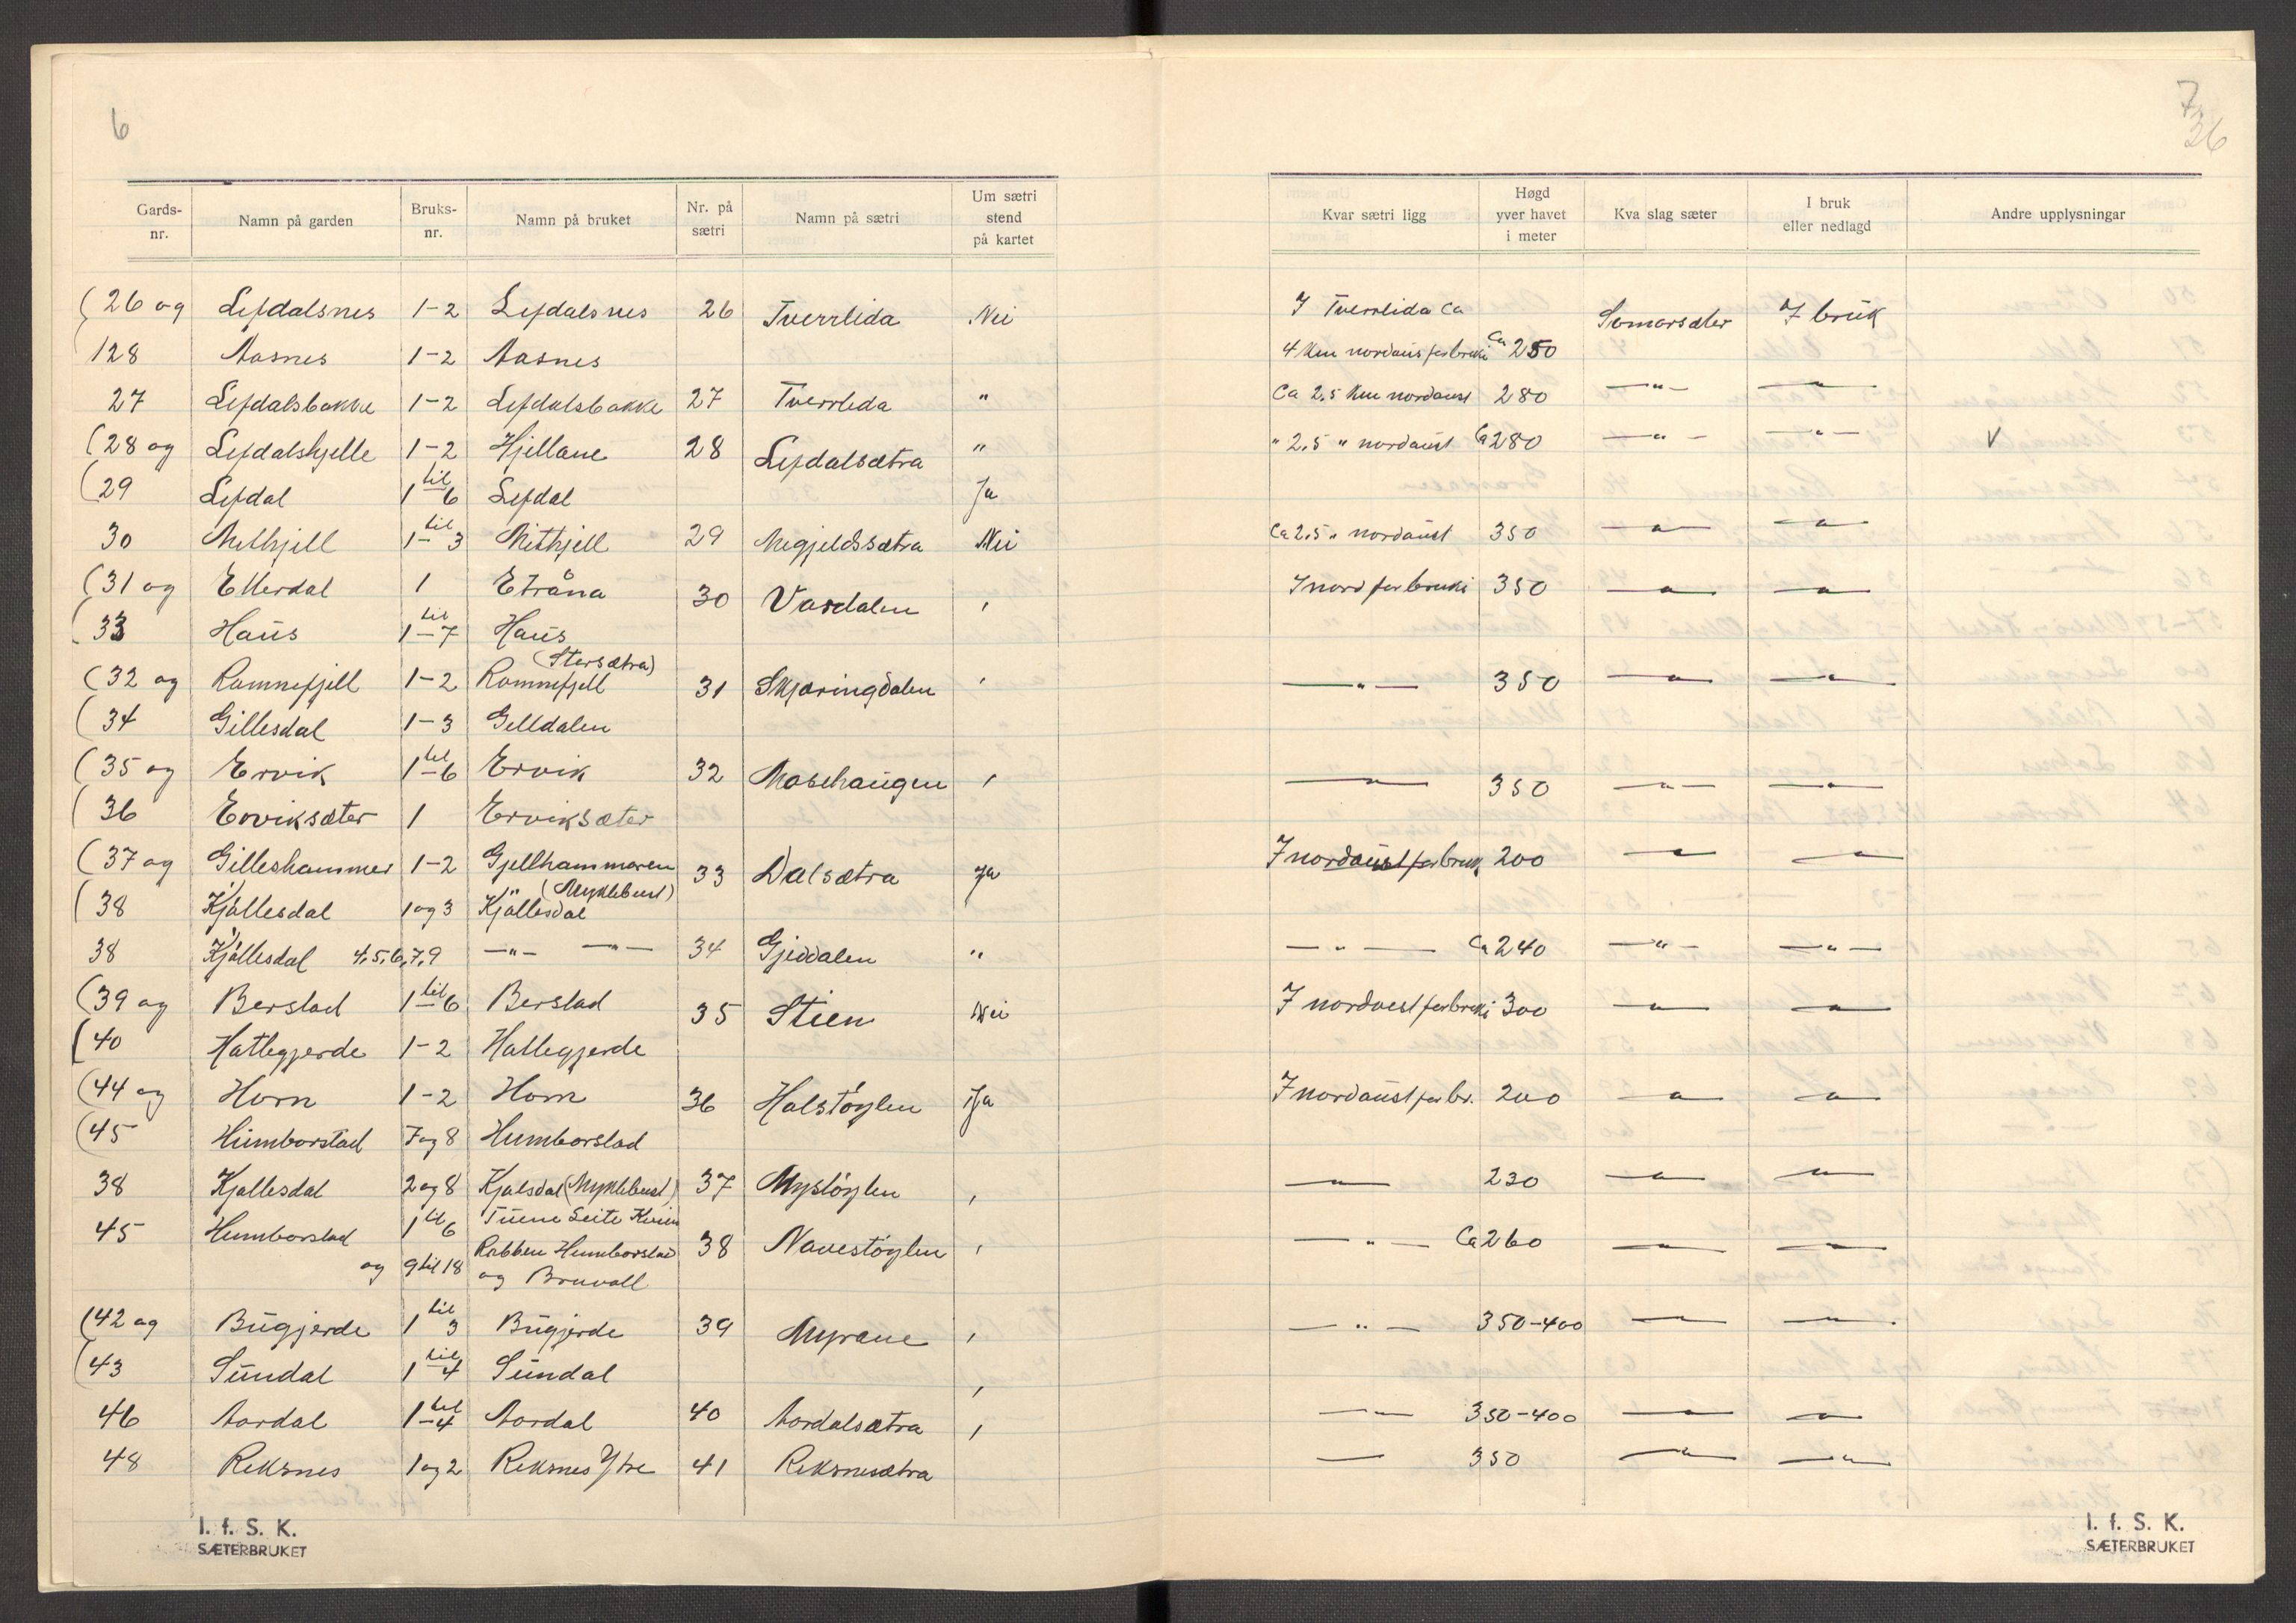 6
Gards-nr. Namn på garden Bruks-nr. Namn på bruket Nr. på sætri Namn på sætri Um sætri stend på kartet
(26 og Lefdalsnes 1-2 Lefdalsnes 26 Tverrlida Nei
128 Aasnes 1-2 Aasnes
27 Lefdalsbakke 1-2 Lefdalsbakke 27 Tverrleda "
(28 og Lefdalshjelle 1-2 Hjellane 28 Lefdalsætra "
(29 Lefdal 1 til 6 Lefdal Ja
30 Melhjell 1 til 3 Mithjell 29 Megjeldssætra Nei
(31 og Etterdal 1 Etråna 30 Vardalen ,
(33 Haus 1 til 7 Haus
(32 og Ramnefjell 1-2 Ramnefjell (Storsætra) 31 Skjæringdalen ,
(34 Gillesdal 1-3 Gelldalen
(35 og Ervik 1 til 6 Ervik 32 Mosehaugen ,
(36 Erviksæter 1 Erviksæter
(37 og Gilleshammer 1-2 Gjellhammaren 33 Dalsætra Ja
(38 Kjøllesdal 1 og 3 Kjöllesdal (Myklebust)
38 Kjøllesdal 4,5,6,7,9 -"- -"- 34 Gjeddalen "
(39 og Berstad 1 til 6 Berstad 35 Stien Nei
(40 Hatlegjerde 1-2 Hatlegjerde
(44 og Horn 1-2 Horn 36 Halstøylen Ja
(45 Humborstad 7 og 8 Humborstad
38 Kjøllesdal 2 og 8 Kjølsdal (Myklebust) 37 Mystøylen ,
45 Humborstad 1 til 6 Tuene Leite
og 9 til 18 Rabben Humborstad 38 Navestøylen ,
og Bruvoll
(42 og Bugjerde 1 til 3 Bugjerde 39 Myrane ,
(43 Sundal 1 til 4 Sundal ,
46 Aardal 1 til 4 Aardal 40 Aardalsætra ,
48 Reksnes 1 og 2 Reksnes Ytre 41 Reksnesætra
I. f. S. K.
SÆTERBRUKET
7
26
Kvar sætri ligg Høgd yver havet i meter Kva slag sæter I bruk eller nedlagd Andre upplysningar
I Tverrlida ca Somarsæter I bruk
4 km nordaust for bruki Ca 250
Ca 2,5 km nordaust 280 -"- -"-
" 2,5 " nordaust Ca 280 -"- -"- V
Ca 2,5 " nordaust 350 -"- -"-
I nord for bruki 350 -"- -"-
-"- 350 -"- -"-
-"- 350 -"- -"-
I nordaust for bruk 200 -"- -"-
-"- Ca 240 -"- -"-
I nordvest for bruki 300 -"- -"-
I nordaust for br. 200 -"- -"-
-"- 230 -"- -"-
-"- Ca 260 -"- -"-
-"- 350-400 -"- -"-
-"- 350-400 -"- -"-
- 350 -"- -"-
I. f. S. K.
SÆTERBRUKET